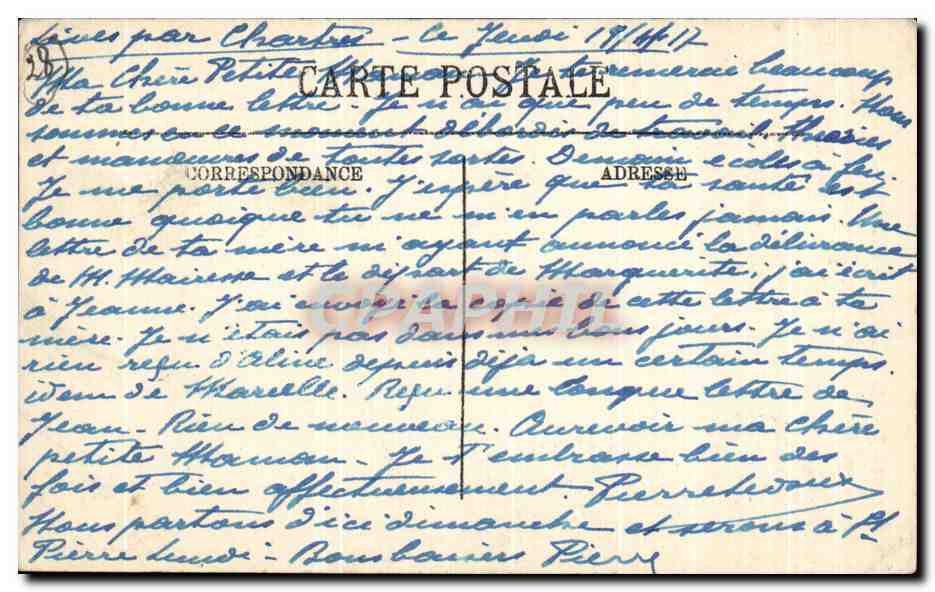 Lèves par Chartres - le Jeudi 19/4/17
28
Ma Chère Petite Maman - Je te remercie beaucoup
CARTE POSTALE
de ta bonne lettre - Je n'ai que peu de temps. Nous
sommes en ce moment débordés de travail.
et manoeuvres de toutes sortes. Demain écoles à feu.
CORRESPONDANCE
ADRESSE
Je me porte bien. J'espère que ta santé est
bonne quoique tu ne m'en parles jamais. Une
lettre de ta mère m'ayant annoncé la délivrance
de M. Mairesse et le départ de Marguerite, j'ai écrit
à Jeanne. J'ai envoyé la copie de cette lettre à ta
CPAPHIL
mère. Je n'étais pas dans mes bons jours. Je n'ai
rien reçu d'Aline depuis déjà un certain temps
idem de Marcelle. Reçu une longue lettre de
Jean - Rien de nouveau. Aurevoir ma chère
petite Maman - Je t'embrasse bien des
fois et bien affectueusement. Pierre
Nous partons d'ici dimanche et serons à St
Pierre Lundi - Bons baisers Pierre